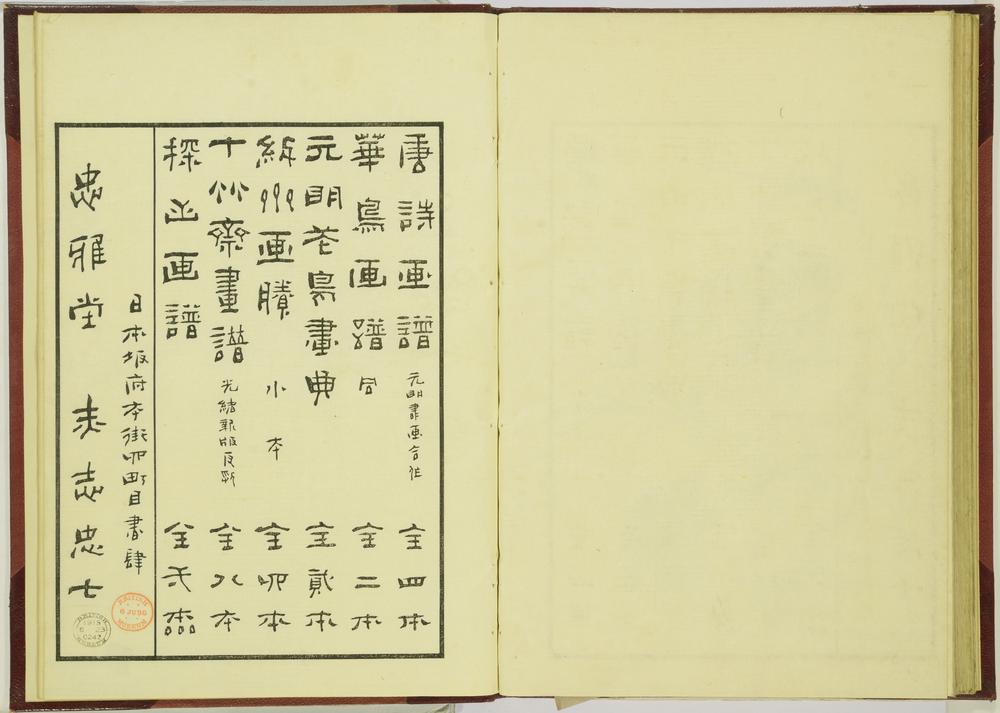 唐詩画譜 元明書画合作 全四本
華鳥画譜 同 全二本
元明花鳥畫典 全貳本
画賸 小本 全四本
十竹齋畫譜 光緒 版 全八本
探幽画譜 全 本
日本坂府本街四町目書肆
忠雅堂 赤志忠七
BRITISH
6 JU 96
MUSEUM
BRITISH
1915
MUSEUM